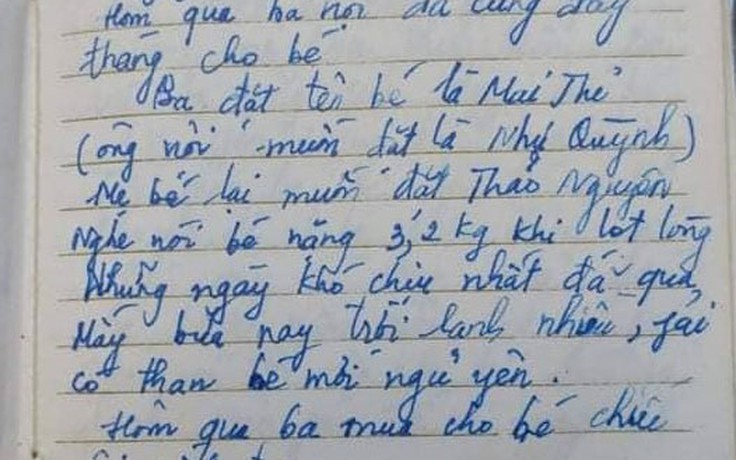 Hôm qua bà nội đã cúng đầy
tháng cho bé
Ba đặt tên bé là Mai Thi
(ông nội muốn đặt là Như Quỳnh)
Mẹ bé lại muốn đặt Thảo Nguyên
Nghe nói bé nặng 3,2 kg khi lọt lòng
Những ngày khó chịu nhất đã qua
Mấy bữa nay trời lạnh nhiều, phải
có than bé mới ngủ yên.
Hôm qua ba mua cho bé chiếc